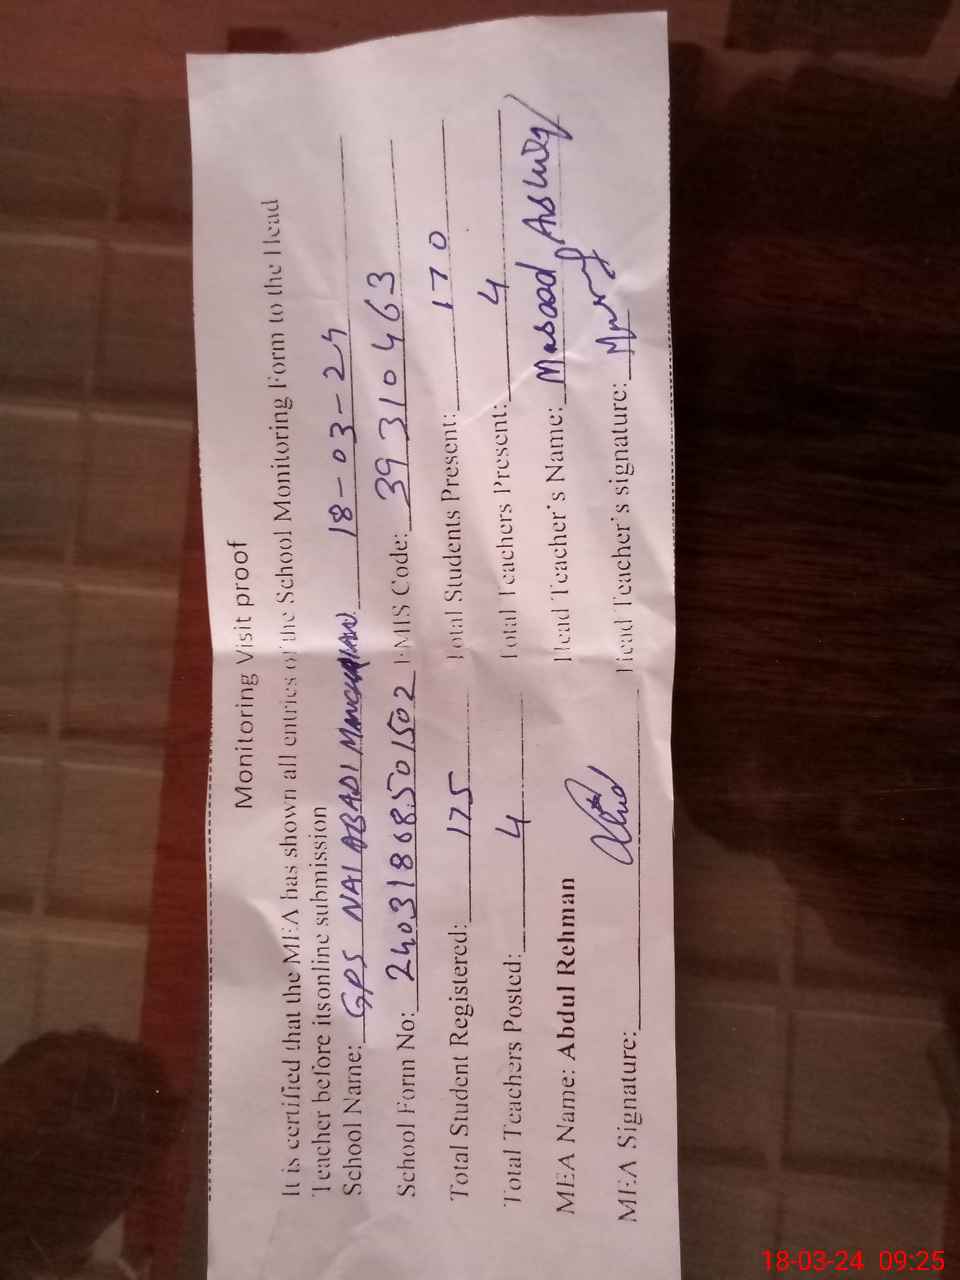 Monitoring Visit proof
It is certified that the MEA has shown all entries of the School Monitoring Form to the Head
Teacher before itsonline submission
School Name: GPS NAI ABADI 18-03-24
School Form No: 24031868501502 EMIS Code: 39310463
Total Student Registered: 175 Total Students Present: 170
Total Teachers Posted: 4 Total Teachers Present: 4
MEA Name: Abdul Rehman Head Teacher's Name: Masood Ashraf
MEA Signature: Head Teacher's signature:
18-03-24 09:25